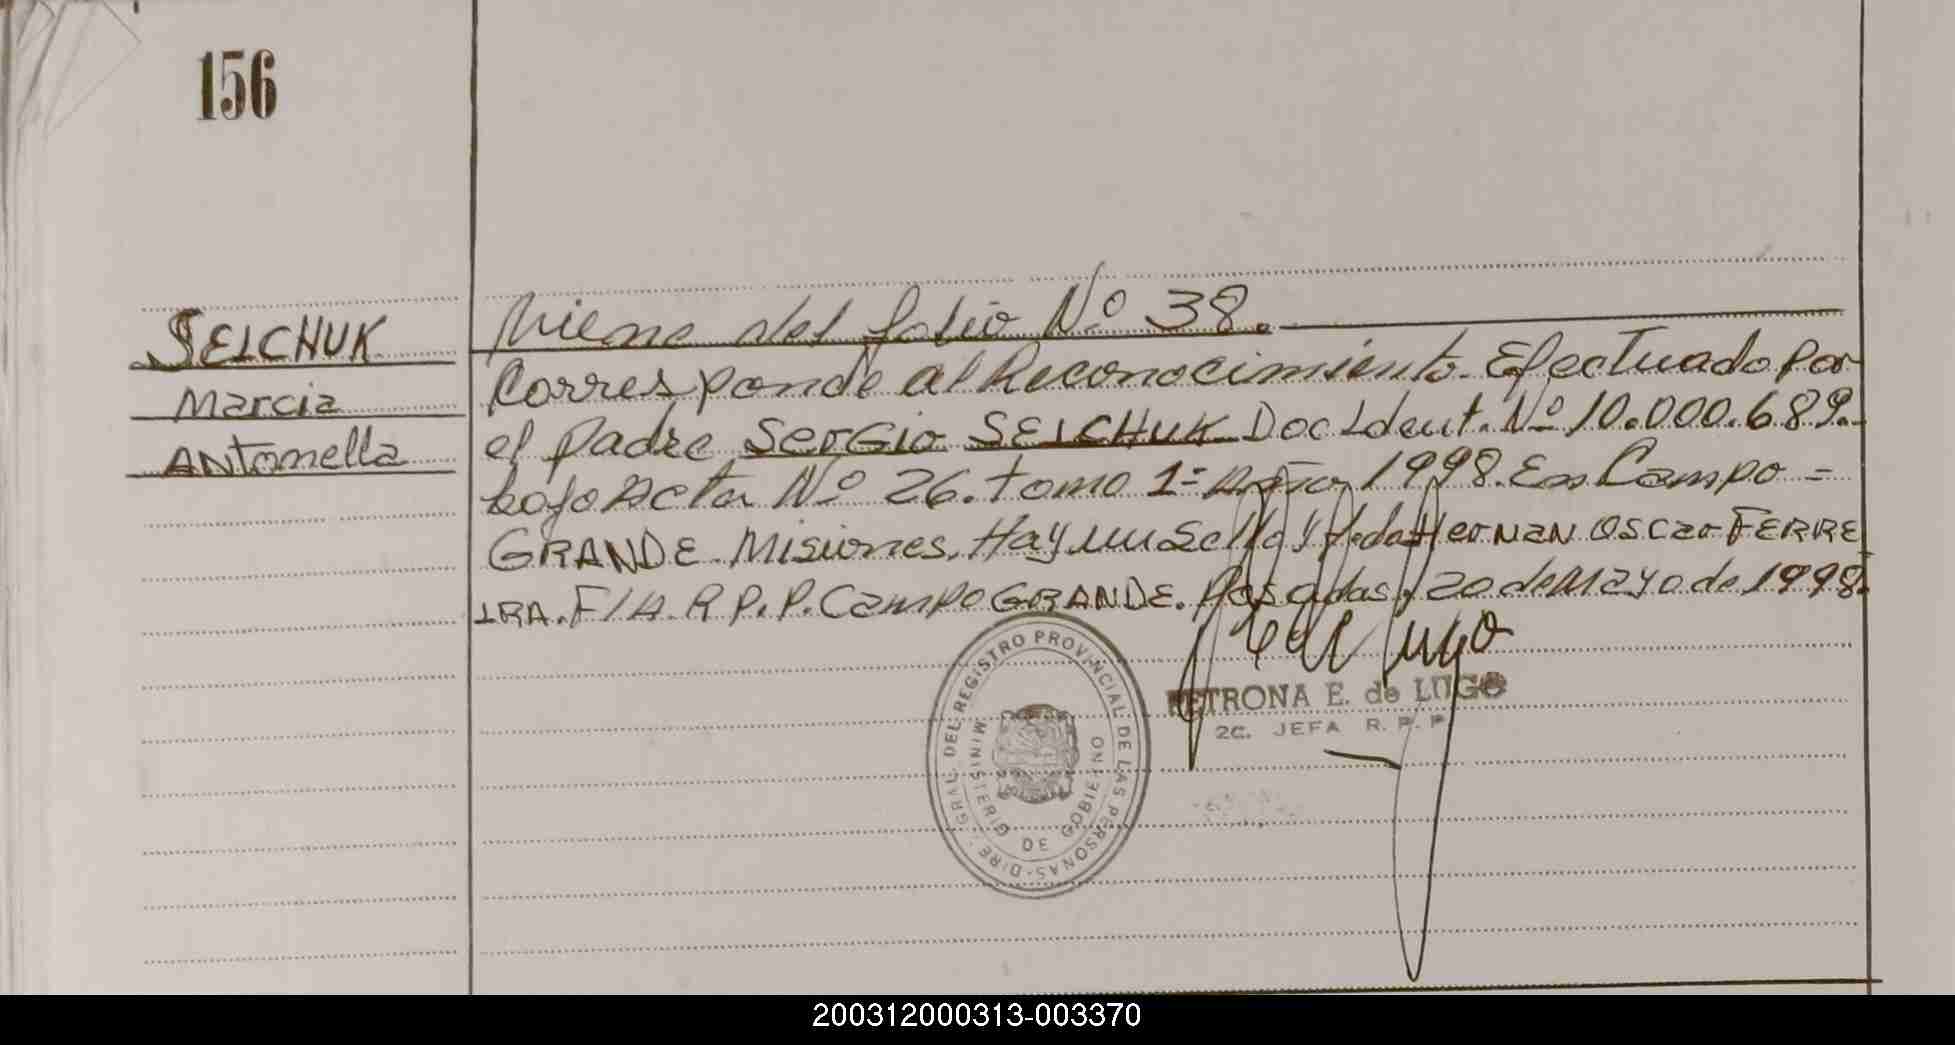 156
SEICHUK
Marcia
ANtonella
Viene del folio Nº 38.
Corresponde al Reconocimiento Efectuado Por
el Padre SerGio SEICHUK Doc Ident. Nº 10.000.689.-
bajo Acta Nº 26. tomo 1º Año 1998. En Campo =
GRANDE Misiones. Hay un Sello y Fdo HerNaN OSCar FERRE
IRA. F/A. R P. P. Campo GRANDE. Posadas, 20 de Mayo de 1998.
DIRE. GRAL. DEL REGISTRO PROVINCIAL DE LAS PERSONAS
MINISTERIO DE GOBIERNO
PETRONA E. de LUGO
2C. JEFA R. P. P
200312000313-003370